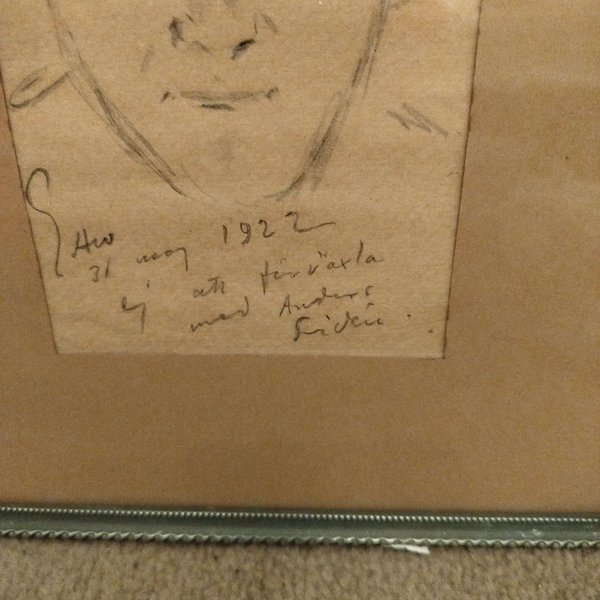 31 maj 1922
Ej att förväxla
med Anders